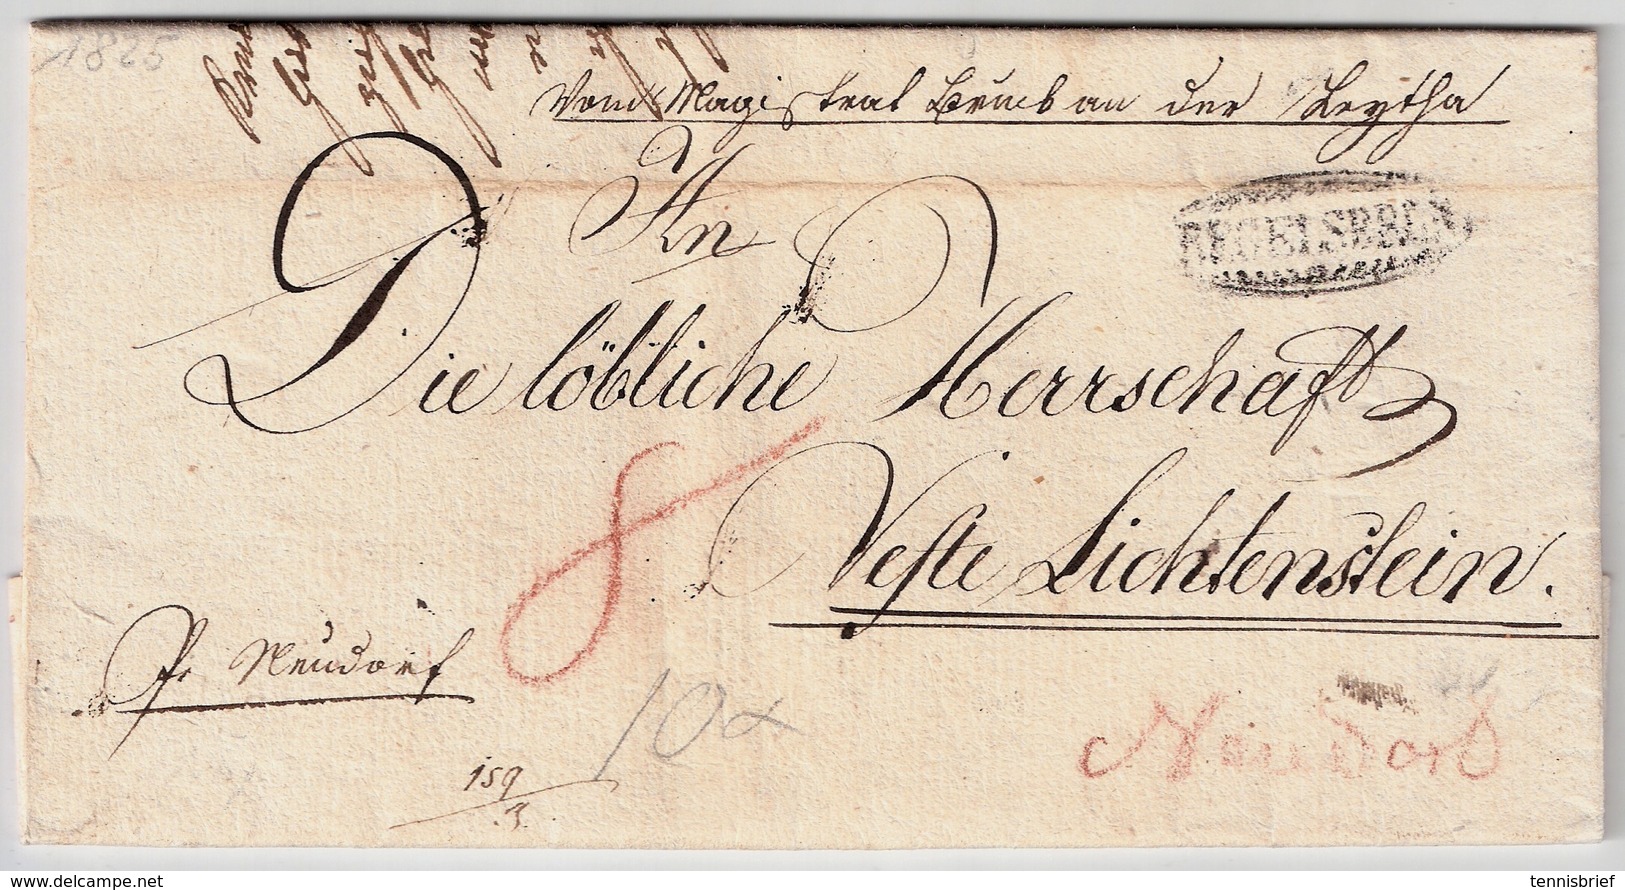 1825
Vom Magistrat Bruck an der Leytha
An
REGELSBRUN
Die löbliche Herrschaft
8
Veste Lichtenstein.
pr Neudorf
10x
Neudorf
159
3.
delcampe.net
tennisbrief